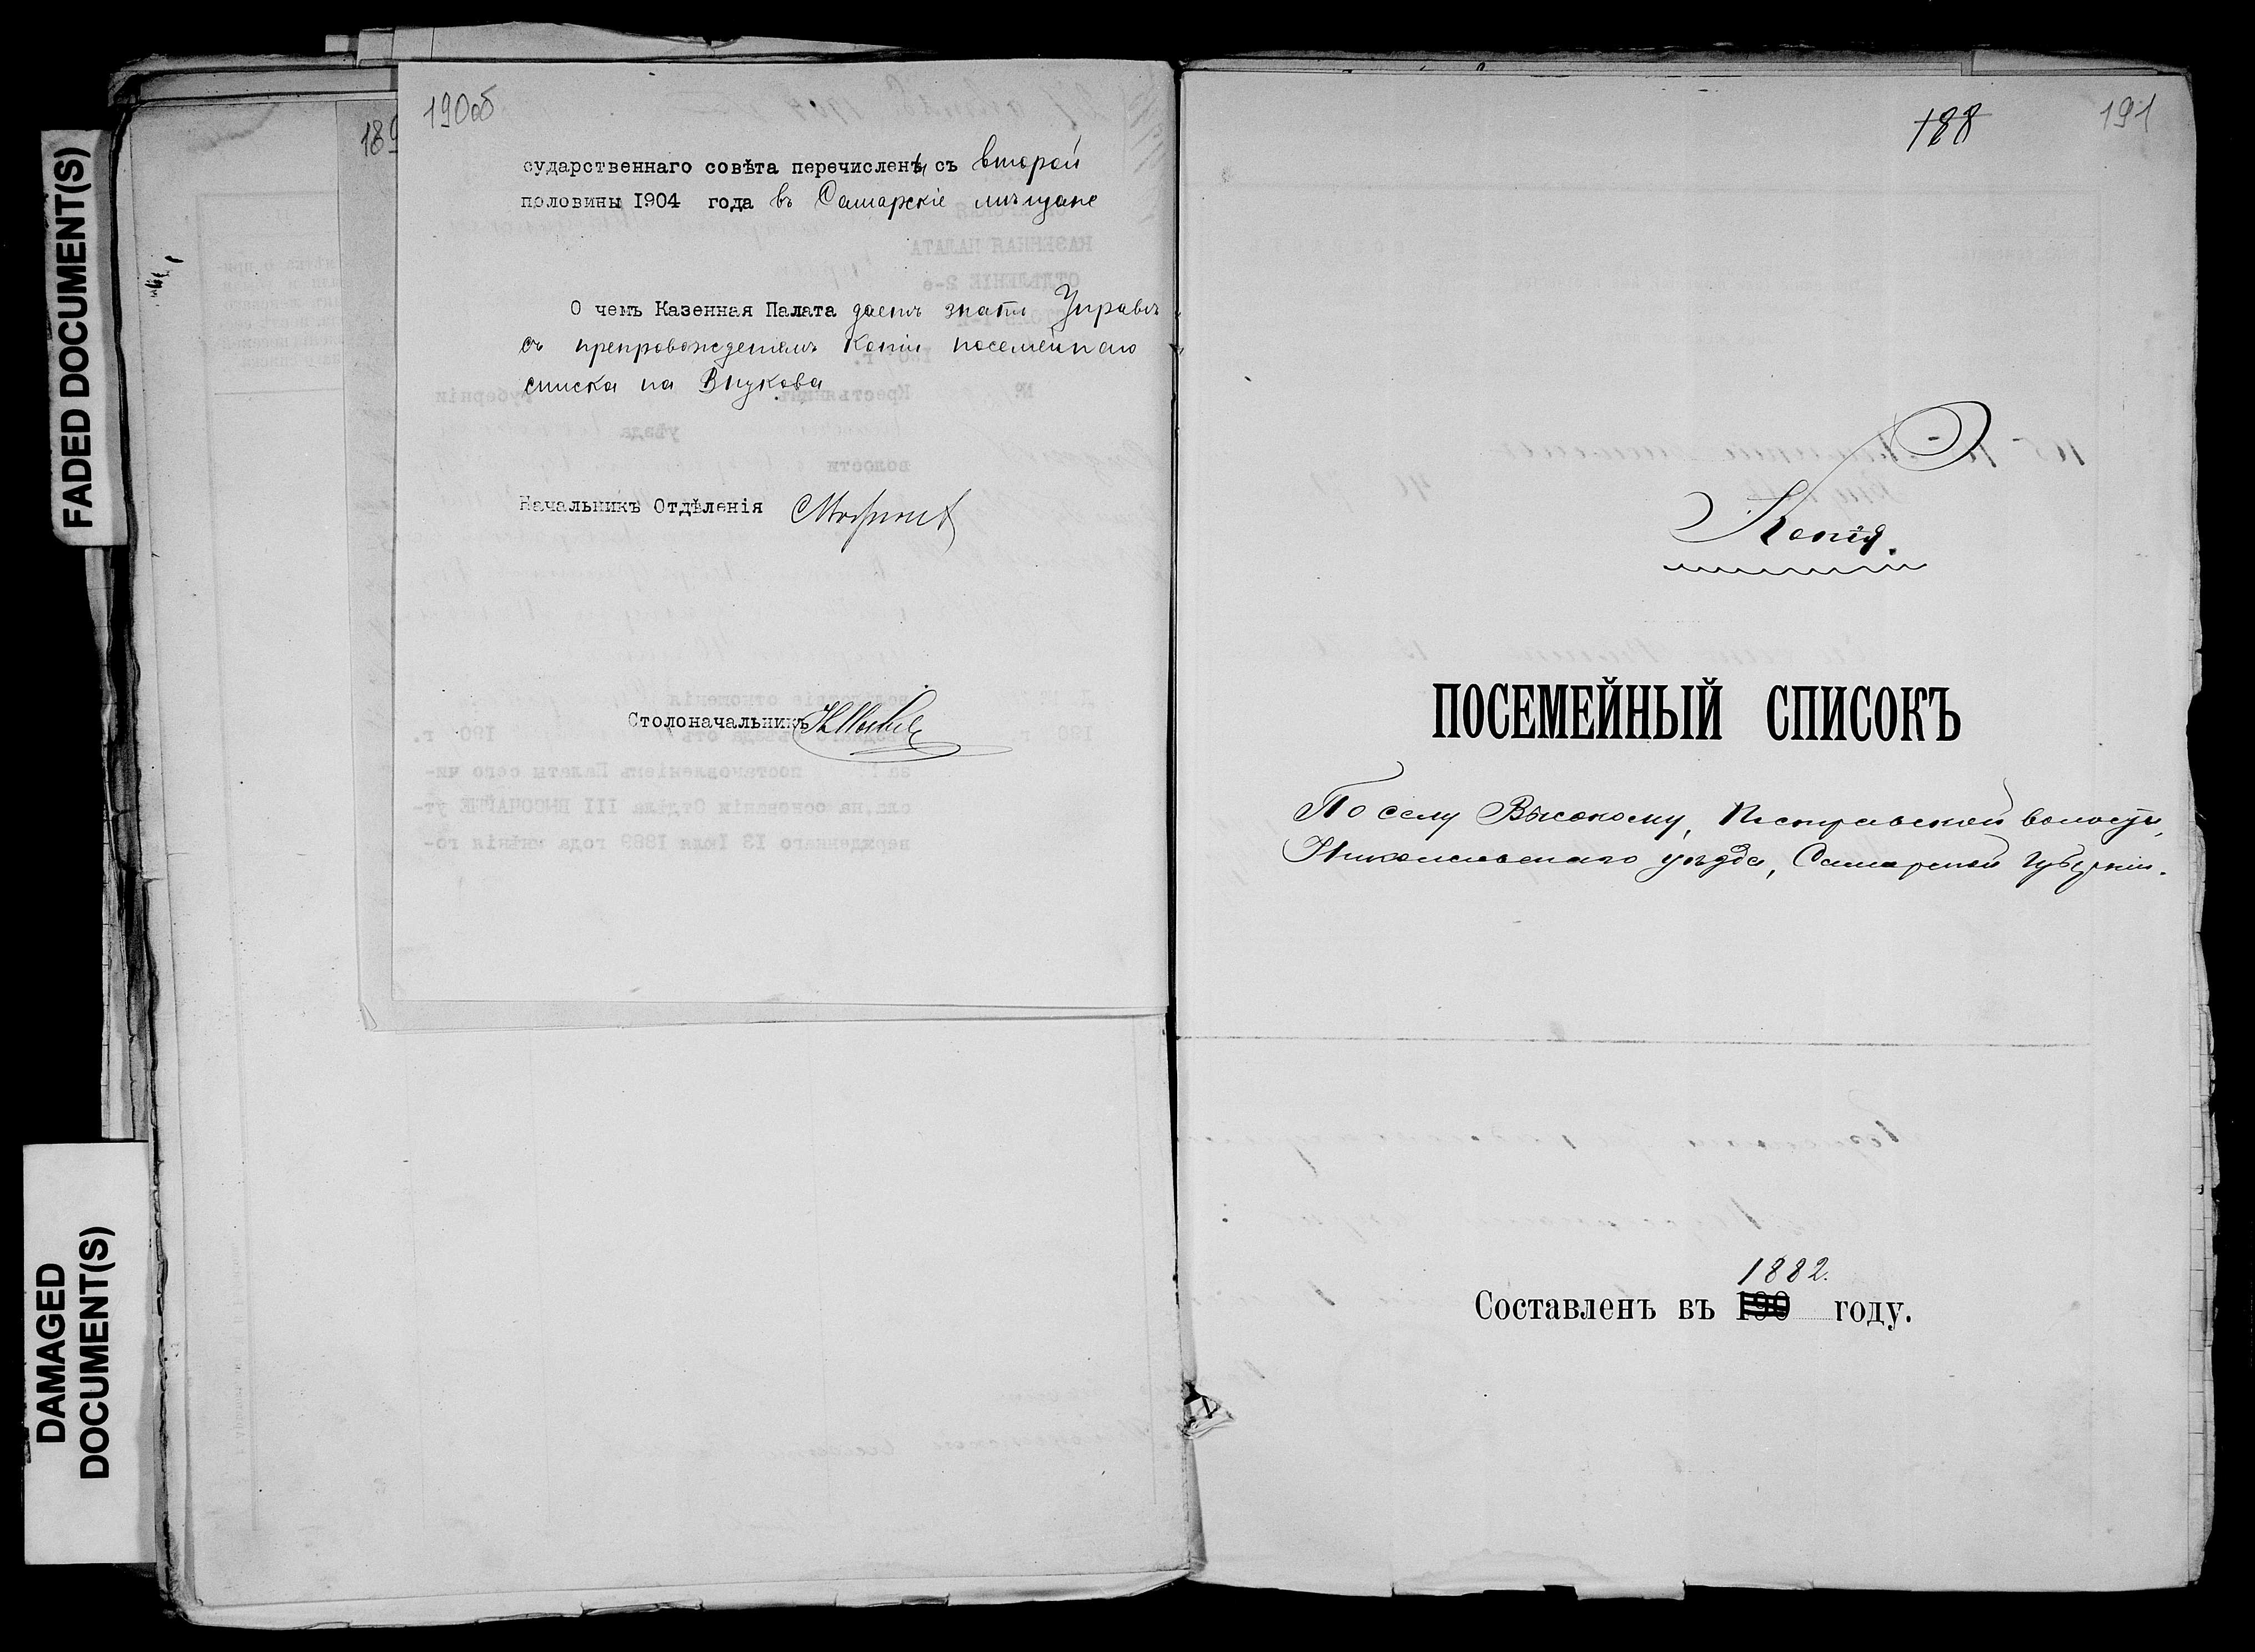 FADED DOCUMENT(S)
DAMAGED
DOCUMENT(S)
190об
189
сударственнаго совѣта перечислены съ второй
половины 1904 года въ Самарскіе мѣщане
О чемъ Казенная Палата даетъ знать Управѣ
съ препровожденіемъ копіи посемейнаго
списка на Внукова
Начальникъ Отдѣленія
Столоначальникъ
188
191
Копія.
ПОСЕМЕЙНЫЙ СПИСОКЪ
По селу Высокому, Пестравской волости,
Николаевскаго уѣзда, Самарской губерніи.
1882.
Составленъ въ 190 году.